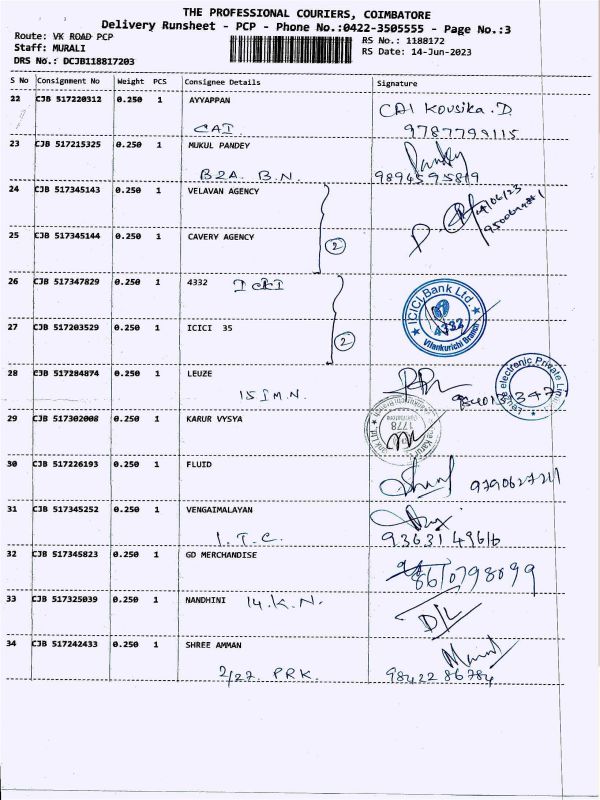 THE PROFESSIONAL COURIERS, COIMBATORE
Delivery Runsheet - PCP - Phone No.:0422-3505555 - Page No.:3
Route: VK ROAD PCP RS No.: 1188172
Staff: MURALI RS Date: 14-Jun-2023
DRS No.: DCJB118817203
S No Consignment No Weight PCS Consignee Details Signature
22 CJB 517220312 0.250 1 AYYAPPAN CAI Kousika.D
CAI 9787799115
23 CJB 517215325 0.250 1 MUKUL PANDEY
B2A B.N. 9894595819
24 CJB 517345143 0.250 1 VELAVAN AGENCY
25 CJB 517345144 0.250 1 CAVERY AGENCY
2
26 CJB 517347829 0.250 1 4332 ICICI Bank Ltd.
4332
Vilankurichi Branch
27 CJB 517203529 0.250 1 ICICI 35
2
28 CJB 517284874 0.250 1 LEUZE
15 I M.N.
electronic Private
29 CJB 517302008 0.250 1 KARUR VYSYA 1778
30 CJB 517226193 0.250 1 FLUID
31 CJB 517345252 0.250 1 VENGAIMALAYAN
I.T.C.
32 CJB 517345823 0.250 1 GD MERCHANDISE 8610798099
33 CJB 517325039 0.250 1 NANDHINI 14.K.N.
34 CJB 517242433 0.250 1 SHREE AMMAN
2/27 PRK. 9842286784